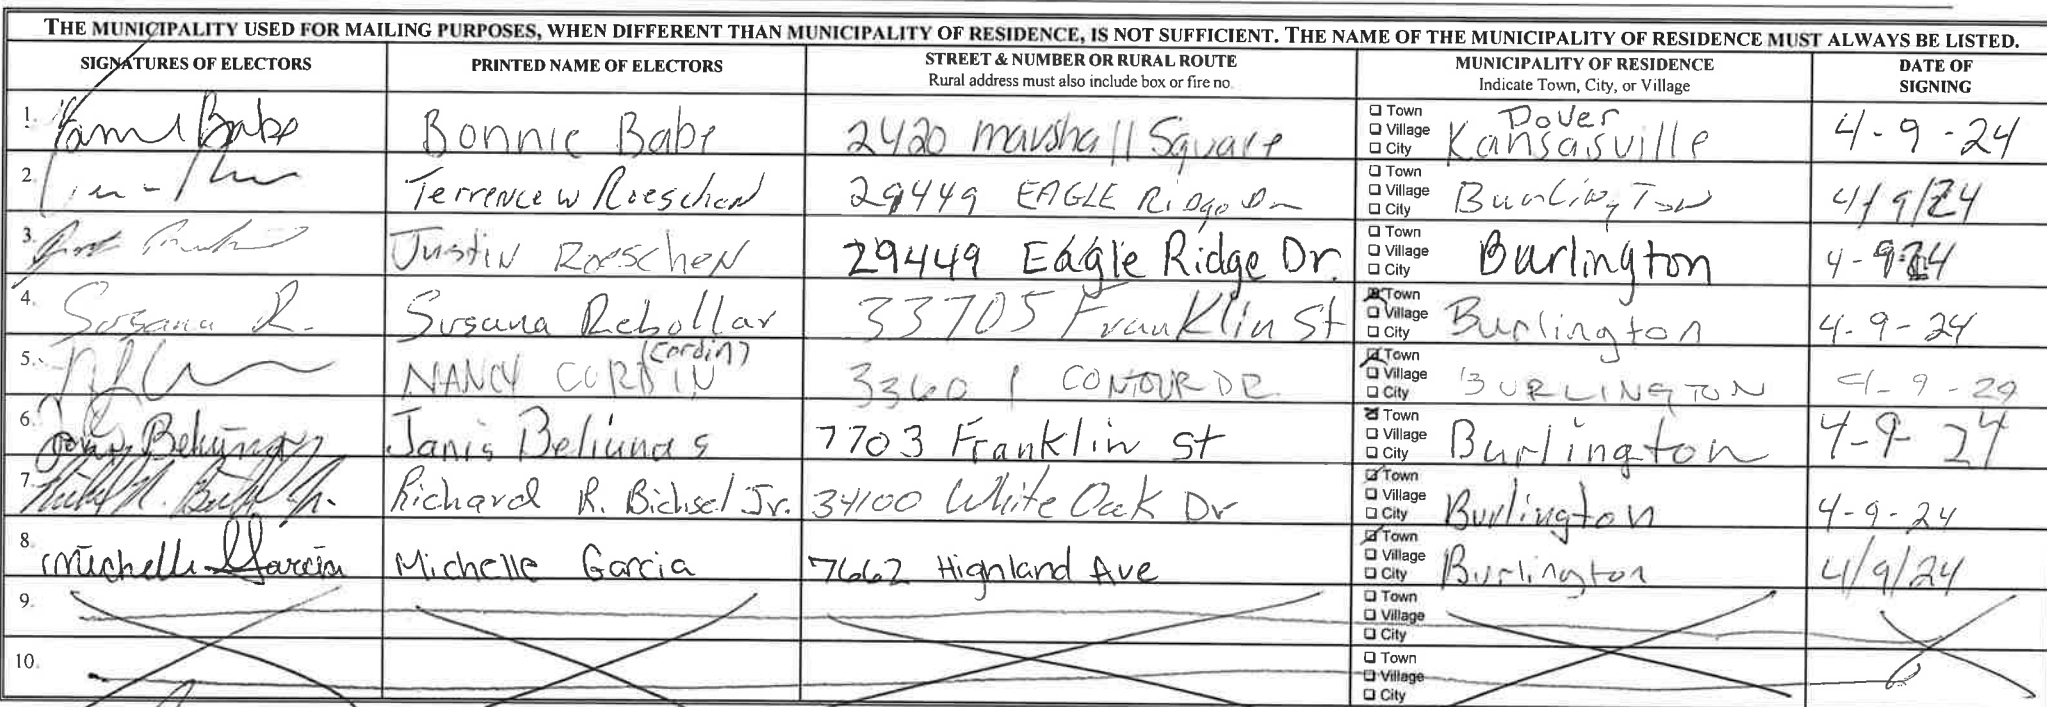 THE MUNICIPALITY USED FOR MAILING PURPOSES, WHEN DIFFERENT THAN MUNICIPALITY OF RESIDENCE, IS NOT SUFFICIENT. THE NAME OF THE MUNICIPALITY OF RESIDENCE MUST ALWAYS BE LISTED.
SIGNATURES OF ELECTORS PRINTED NAME OF ELECTORS STREET & NUMBER OR RURAL ROUTE MUNICIPALITY OF RESIDENCE DATE OF
Rural address must also include box or fire no. Indicate Town, City, or Village SIGNING
1. Babe Bonnie Babe 2420 Marshall Square Town Village City Dover Kansasville 4-9-24
2. Terrence W Roeschen 29449 EAGLE Ridge Dr Town Village City Burlington 4/9/24
3. Justin Roeschen 29449 Eagle Ridge Dr. Town Village City Burlington 4-9-24
4. Susana R. Susana Rebollar 33705 Franklin St Town Village City Burlington 4-9-24
5. NANCY CORDIN (Cordin) 33601 CONTOUR DR. Town Village City BURLINGTON 4-9-24
6. Janis Beliunas 7703 Franklin St Town Village City Burlington 4-9-24
7. Richard R. Bichsel Jr. 34100 White Oak Dr Town Village City Burlington 4-9-24
8. Michelle Garcia Michelle Garcia 7662 Highland Ave Town Village City Burlington 4/9/24
9. Town Village City
10. Town Village City